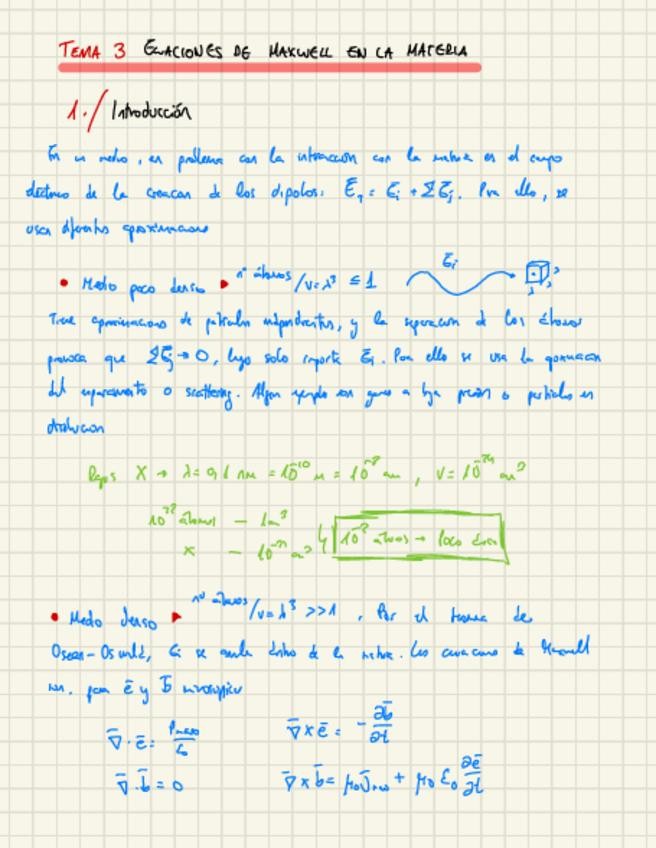 TEMA 3 ECUACIONES DE MAXWELL EN LA MATERIA
1./ Introducción
En un medio, un problema con la interacción con la materia es el campo
eléctrico de la creación de los dipolos: E̅_T = E̅_i + Σ E̅_j. Para ello, se
usan diferentes aproximaciones
• Medio poco denso ▸ nº átomos/V=λ³ ≤ 1 E̅_i
Tiene aproximaciones de partículas independientes, y la separación de los átomos
provoca que Σ E̅_j → 0, luego solo importa E̅_i. Para ello se usa la
del esparcimiento o scattering. Algún ejemplo son gases a baja presión o partículas en
disolución
Rayos X → λ = 0,1 nm = 10⁻¹⁰ m = 10⁻⁸ cm, V = 10⁻²⁴ cm³
10²² átomos — 1 cm³
x — 10⁻²⁴ cm³ 10⁻² átomos → poco denso
• Medio denso ▸ nº átomos/V=λ³ >> 1. Por el teorema de
se anula dentro de la materia. Las ecuaciones de Maxwell
para e̅ y b̅ microscópico
∇̅·e̅ = ρ/ε₀ ∇̅×e̅ = -∂b̅/∂t
∇̅·b̅ = 0 ∇̅×b̅ = μ₀ J̅ + μ₀ ε₀ ∂e̅/∂t